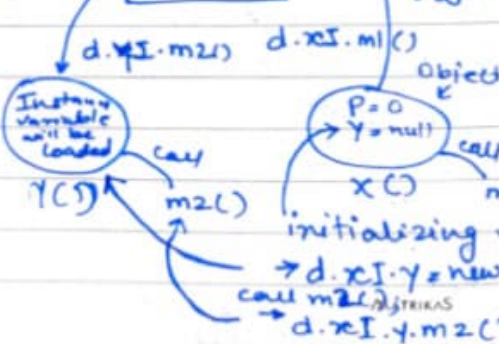 d.yI.m2()
d.xI.m1()
Object
Instance
variable
will be
Loaded
P=0
Y=null
call
call
Y()
m2()
X()
initializing
→ d.xI.Y=new
call m2()
→ d.xI.y.m2()